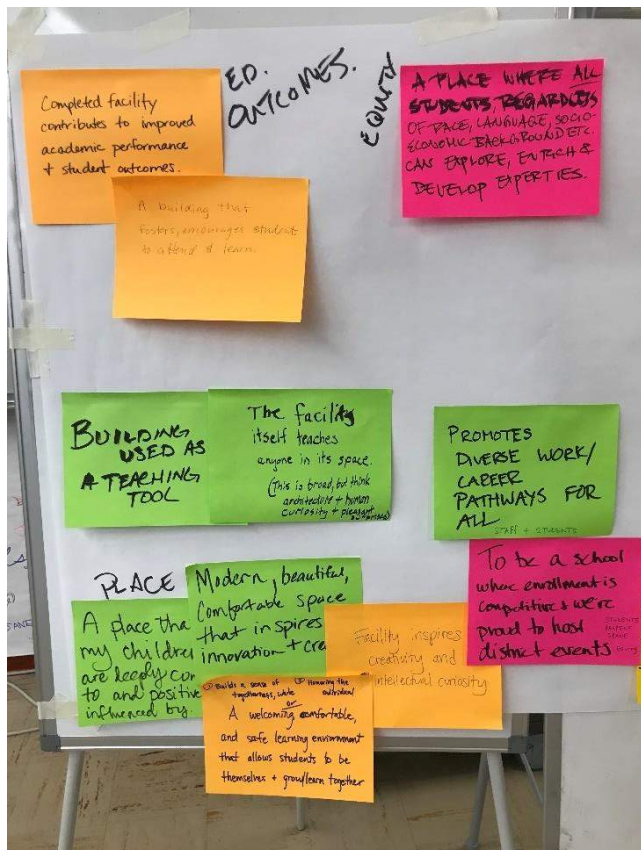 ED.
OUTCOMES.
Completed facility
contributes to improved
academic performance
+ student outcomes.
A building that
fosters, encourages student
to attend & learn.
EQUITY
A PLACE WHERE ALL
STUDENTS, REGARDLESS
OF RACE, LANGUAGE, SOCIO-
ECONOMIC BACKGROUND ETC.
CAN EXPLORE, ENRICH &
DEVELOP EXPERTIES.
BUILDING
USED AS
A TEACHING
TOOL
The facility
itself teaches
anyone in its space.
(This is broad, but think
architecture + human
curiosity + pleasant
PROMOTES
DIVERSE WORK/
CAREER
PATHWAYS FOR
ALL
STAFF + STUDENTS
PLACE
A place tha
my children
are deeply con
to and positive
influenced by.
Modern, beautiful,
comfortable space
that inspires
innovation + crea
Facility inspires
creativity and
intellectual curiosity
To be a school
where enrollment is
competitive & we're
proud to host
district events
STUDENTS
PARENT
STAFF
Builds a sense of
togetherness, while
or
Honoring the
individual
A welcoming comfortable,
and safe learning environment
that allows students to be
themselves + grow/learn together